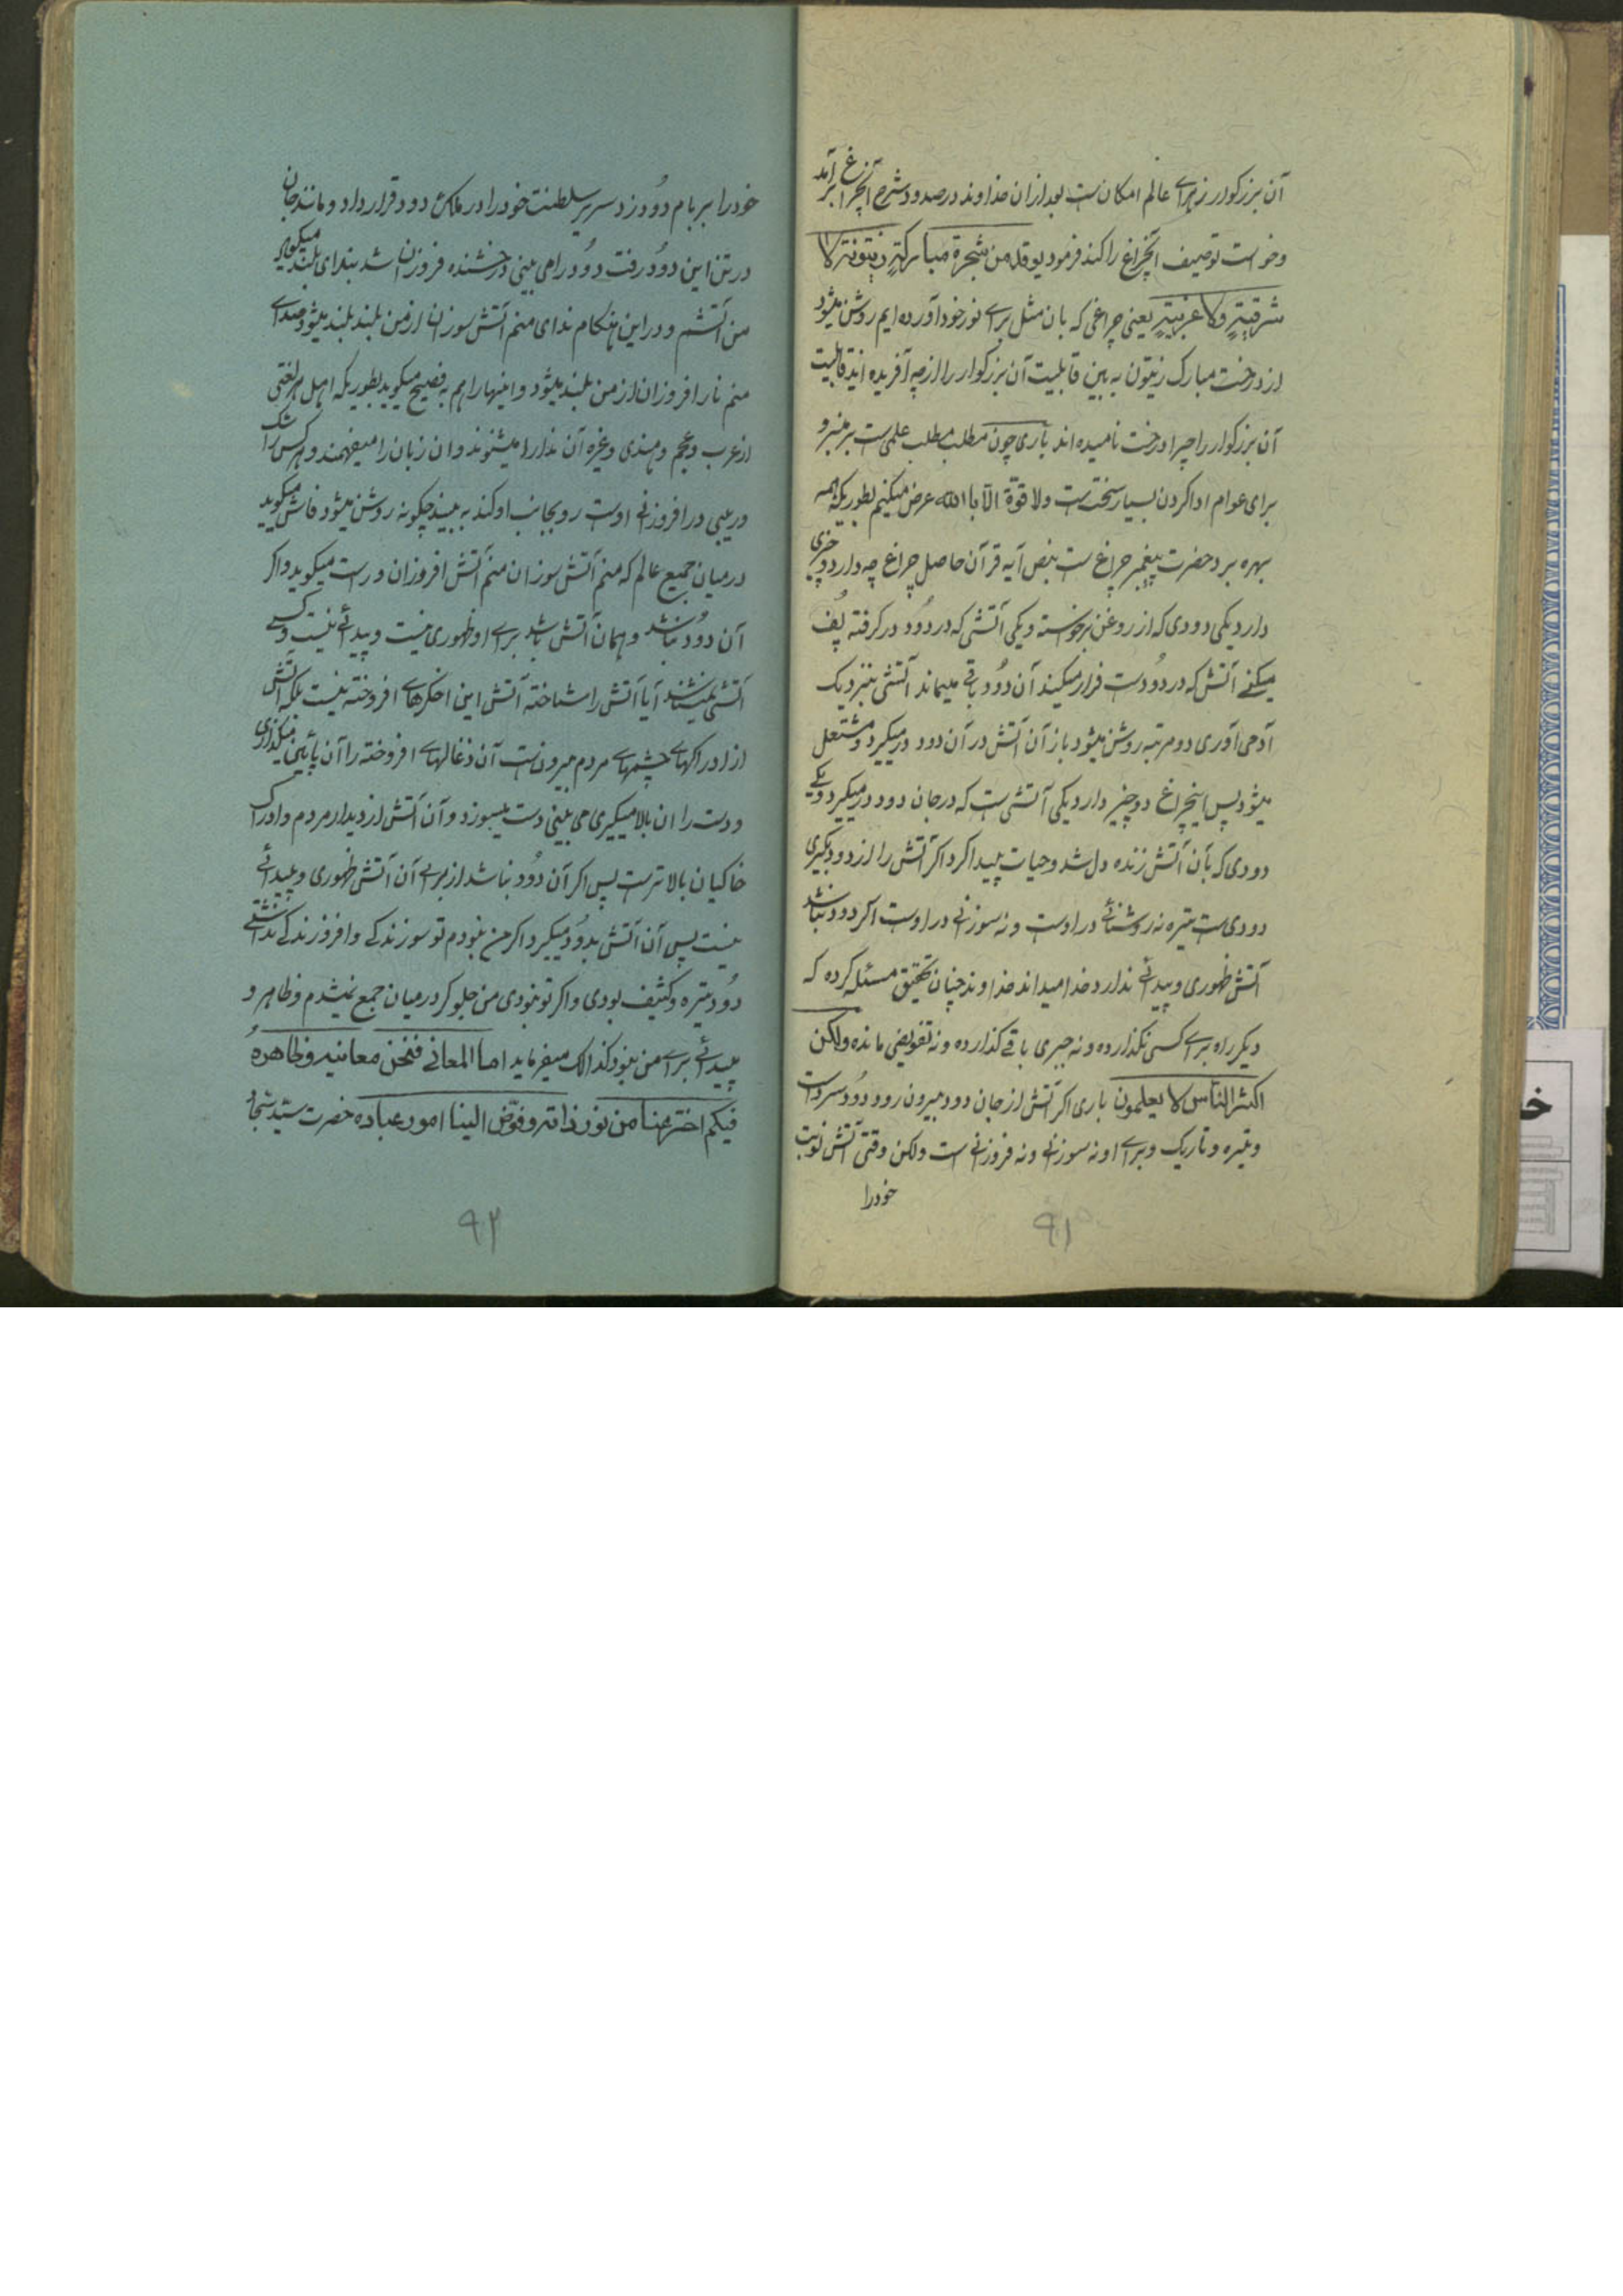 آن بزرگوار از برای عالم امکان است بعد از آن خداوند در صدد شرح آنچراغ برآمد
وخواست توصیف آنچراغ را کند فرمود یوقد من شجرة مبارکة زیتونة لا
شرقیة ولا غربیة یعنی چراغی که بآن مثل برای نور خود آورده ایم روشن میشود
از درخت مبارک زیتون به بین قابلیت آن بزرگوار را از چه آفریده اند قابلیت
آن بزرگوار را چرا درخت نامیده اند باری چون مطلب مطلب علمی است بر منبر و
برای عوام ادا کردن بسیار سخت است ولا قوة الا باالله عرض میکنیم بطوریکه همه
بهره برد حضرت پیغمبر چراغ است بنص آیه قرآن حاصل چراغ چه دارد دو چیزی
دارد یکی دودی که از روغن برخواسته و یکی آتشی که در دُود در گرفته پُف
میکنے آتش که در دُود است فرار میکند آن دُود باقے میماند آتشی بنزدیک
آدمی آوری دو مرتبه روشن میشود باز آن آتش در آن دود در میگیرد و مشتعل
میشود پس اینچراغ دو چیز دارد یکی آتشی است که در جان دود در میگیرد و یکے
دودی که بآن آتش زنده دل شد و حیات پیدا کرد اگر آتش را از دود بگیری
دودی است تیره نه روشنائے در اوست و نه سوزنے در اوست اگر دود نباشد
آتش ظهوری و پیدائے ندارد خدا میداند خداوند چنان تحقیق مسئله کرده که
دیگر راه برای کسی نگذارده و نه جبری باقے گذارده و نه تفویضی مانده ولکن
اکثر الناس لا یعلمون باری اگر آتش از جان دود بیرون رود دُود سرد است
و تیره و تاریک و برای او نه سوزنے و نه فروزنے است ولکن وقتی آتش نوبت
خود را
۹۱
خود را بر بام دُود زد سریر سلطنت خود را در ملک دود قرار داد و مانند جان
در تن این دُود رفت دُود را می بینی درخشنده فروزان شد بندای بلند میگوید
من آتشم و در این هنگام ندای منم آتش سوزان از من بلند بلند میشود و صدای
منم نار افروزان از من بلند میشود و اینها را هم به فصیح میگوید بطوریکه اهل هر لغتی
از عرب و عجم و هندی و غیره آن ندا را میشنوند و آن زبان را میفهمند و هر کس را شک
و ریبی در افروزنے اوست رو بجانب او کند به بیند چگونه روشن میشود فاش میگوید
در میان جمیع عالم که منم آتش سوزان منم آتش افروزان و راست میگوید و اگر
آن دُود نباشد و همان آتش باشد برای او ظهوری نیست و پیدائے نیست و کسے
آتشی نمیشناسد آیا آتش را شناخته آتش این اخگرهای افروخته نیست بلکه آتش
از ادراکهای چشمهای مردم بیرون است آن ذغالهای افروخته را آن پائین میگذاری
و دست را آن بالا میگیری می بینی دست میسوزد و آن آتش از دیدار مردم و ادراک
خاکیان بالاتر است پس اگر آن دُود نباشد از برای آن آتش ظهوری و پیدائے
نیست پس آن آتش بدُود میگیرد اگر من نبودم تو سوزندگے و افروزندگے نداشتے
دُود تیره و کثیف بودی و اگر تو نبودی من جلوگر در میان جمع نمیشدم و ظاهر و
پیدائے برای من نبود کذالک میفرماید اما المعانی فنحن معانیه وظاهره
فیکم اخترعنا من نور ذاته و فوّض الینا امور عباده حضرت سیّد سجّاد
۹۲